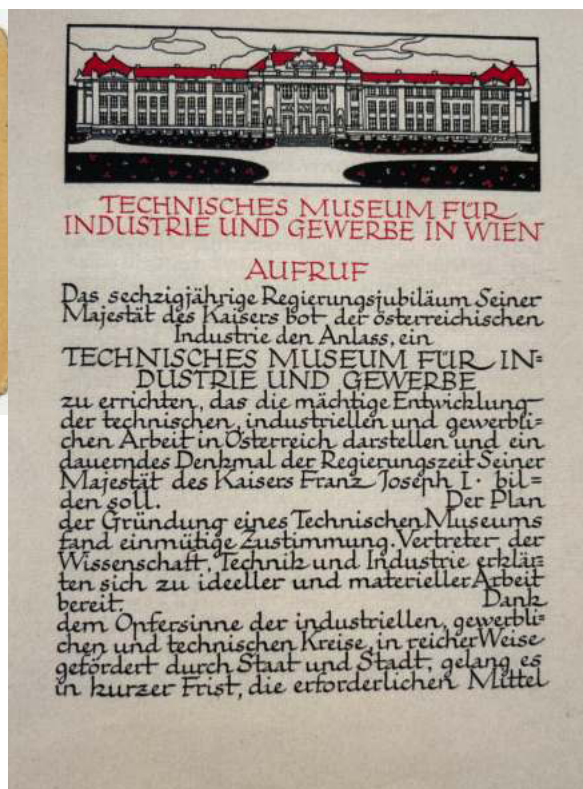 TECHNISCHES MUSEUM FÜR
INDUSTRIE UND GEWERBE IN WIEN
AUFRUF
Das sechzigjährige Regierungsjubiläum Seiner
Majestät des Kaisers bot der österreichischen
Industrie den Anlass, ein
TECHNISCHES MUSEUM FÜR IN=
DUSTRIE UND GEWERBE
zu errichten, das die mächtige Entwicklung
der technischen, industriellen und gewerbli=
chen Arbeit in Österreich darstellen und ein
dauerndes Denkmal der Regierungszeit Seiner
Majestät des Kaisers Franz Joseph I· bil=
den soll. Der Plan
der Gründung eines Technischen Museums
fand einmütige Zustimmung. Vertreter der
Wissenschaft, Technik und Industrie erklär=
ten sich zu ideeller und materieller Arbeit
bereit. Dank
dem Opfersinne der industriellen, gewerbli=
chen und technischen Kreise, in reicher Weise
gefördert durch Staat und Stadt, gelang es
in kurzer Frist, die erforderlichen Mittel